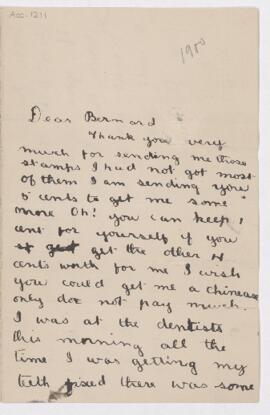 Acc-1211
1900
Dear Bernard
Thank you very
much for sending me those
stamps I had not got most
of them I am sending you
5 cents to get me some
more Oh! you can keep 1
cent for yourself if you
get the other 4
cents worth for me I wish
you could get me a chinease
only doe not pay much.
I was at the dentists
this morning all the
time I was getting my
teeth fixed there was some